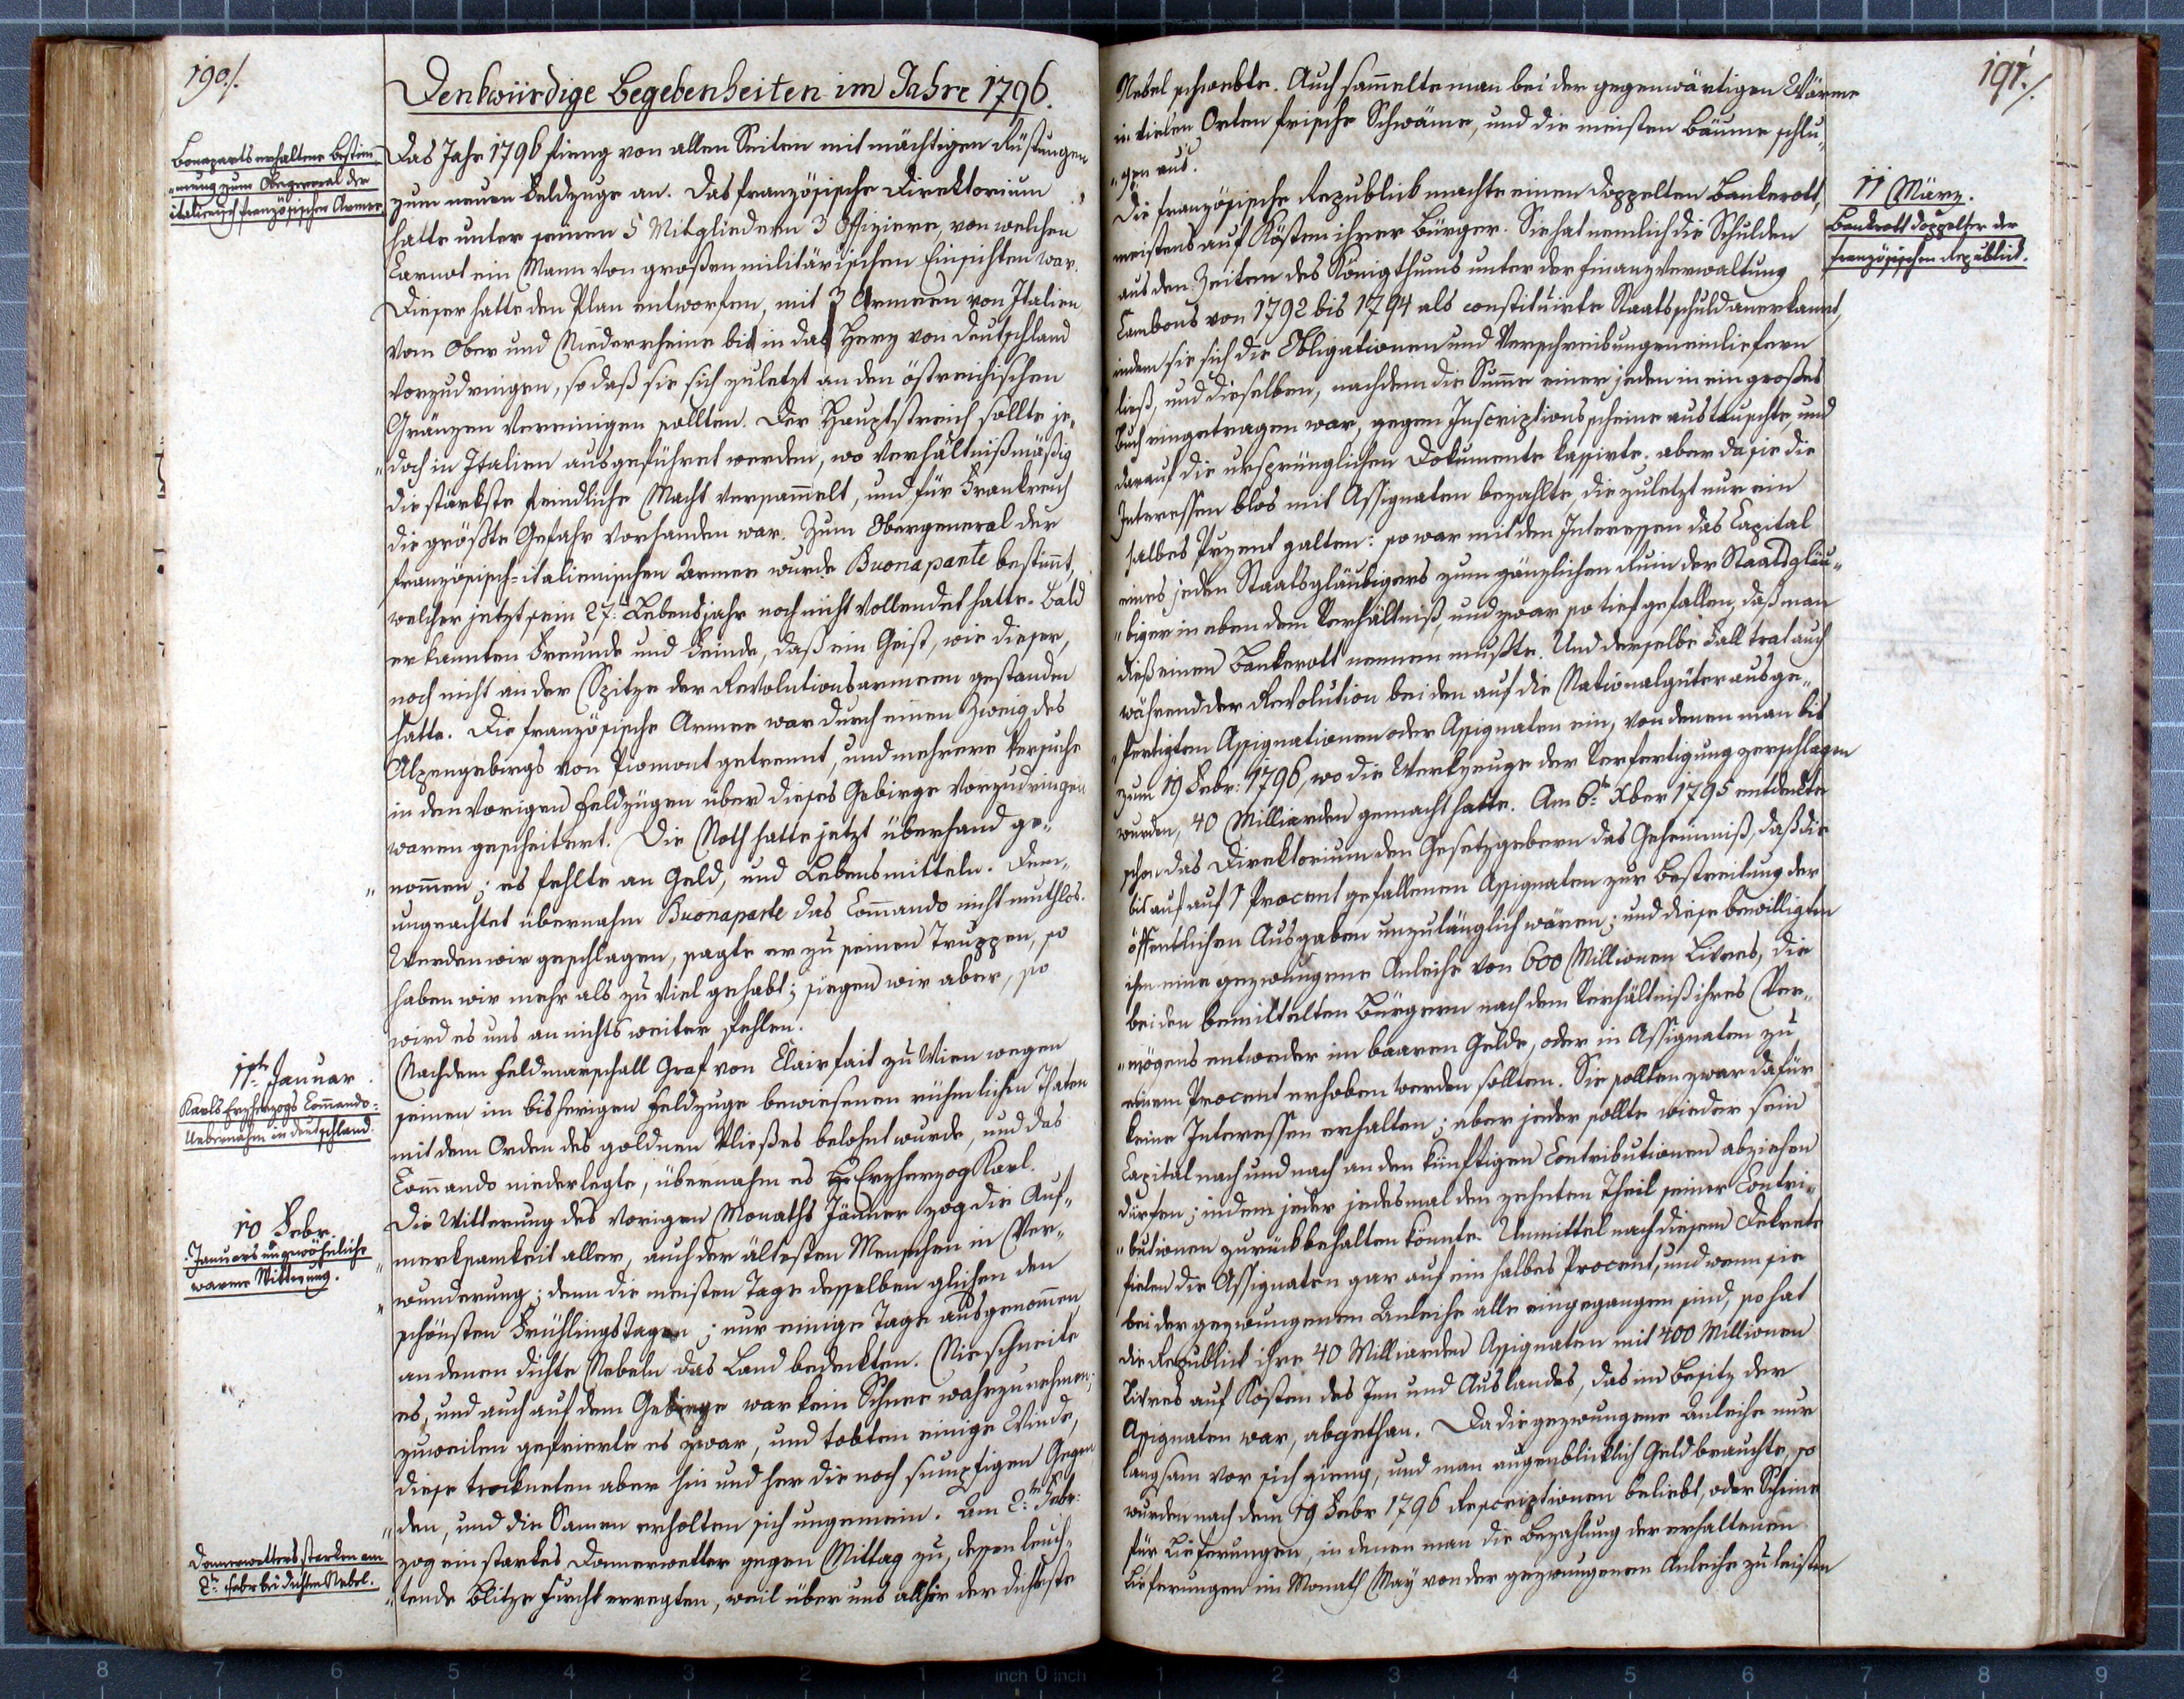 190./.
Denkwürdige Begebenheiten im Jahre 1796.
Bonaparts erhaltene Bestim¬
„mung zum Obergeneral der
italienisch französischen Armee.
Das Jahr 1796 fieng von allen Seiten mit mächtigen Rüstungen
zum neuen Feldzuge an. Das französische Direktorium
hatte unter seinen 5 Mitgliedern 3 Offiziere, von welchen
Carnot ein Mann von großen militärischen Einsichten war.
Dieser hatte den Plan entworfen, mit 3 Armeen von Italien
vom Ober und Niederrheine bis in das Herz von Deutschland
vorzudringen, so daß sie sich zuletzt an den östreichischen
Gränzen vereinigen sollten. Der Hauptstreich sollte je¬
„doch in Italien ausgeführet werden, wo verhältnißmäßig
die stärkste feindliche Macht versam̄elt, und für Frankreich
die größte Gefahr vorhanden war. Zum Obergeneral der
französisch-italienischen Armee wurde Buonaparte bestim̄t,
welcher jetzt sein 27. Lebensjahr noch nicht vollendet hatte. Bald
erkannten Freunde und Feinde, daß ein Geist, wie dieser,
noch nicht an der Spitze der Revolutionsarmeen gestanden
hatte. Die französische Armee war durch einen Zweig des
Alpengebirgs von Piemont getrennt, und mehrere Versuche
in den vorigen Feldzügen über dieses Gebirge vorzudringen
waren gescheitert. Die Noth hatte jetzt überhand ge¬
„nom̄en; es fehlte an Geld, und Lebensmitteln. Dem¬
ungeachtet übernahm Buonaparte das Com̄ando nicht muthlos.
Werden wir geschlagen, sagte er zu seinen Truppen, so
haben wir mehr als zu viel gehabt; siegen wir aber, so
wird es uns an nichts weiter fehlen.
Januar
Karls Erzherzogs Com̄ando-
Uebernahm in Deutschland.
Nachdem Feldmarschall Graf von Clairfait zu Wien wegen
seinen im bisherigen Feldzuge bewiesenen rühmlichen Thaten
mit dem Orden des goldnen Vließes belohnt wurde, und das
Com̄ando niederlegte, übernahm es Hr. Erzherzog Karl.
10 Febr.
Januars ungewöhnliche
warme Witterung.
Die Witterung des vorigen Monaths Jänner zog die Auf¬
„merksamkeit aller, auch der ältesten Menschen in Ver¬
„wunderung; denn die meisten Tage desselben glichen den
schönsten Frühlingstagen; nur einige Tage ausgenom̄en
an denen dichte Nebeln das Land bedeckten. Nie schneite
es, und auch auf dem Gebirge war kein Schnee wahrzunehmen;
zuweilen gefrierte es zwar, und tobten einige Winde,
diese trockneten aber hin und her die noch sumpfigen Gegen
„den, und die Samen erholten sich ungemein. Am 2.ten Febr:
Donnerwetters starken am
2ten Febr bei dichten Nebel.
zog ein starkes Donnerwetter gegen Mittag zu, dessen leuch¬
„tende Blitze Furcht erregten, weil über uns allhier der dichteste
191./.
Nebel schwebte. Auch sam̄elte man bei der gegenwärtigen Wärme
in vielen Orten frische Schwäme, und die meisten Bäume schlu¬
„gen aus.
11 März.
Bankrott doppelter der
französischen Republick.
Die französische Republick machte einen doppelten Bankerott,
meistens auf Kösten ihrer Bürger. Sie hat nemlich die Schulden
aus den Zeiten des Königthums unter der Finanzverwaltung
Cambons von 1792 bis 1794 als constituirte Staatsschuld anerkannt,
indem sie sich die Obligationen und Verschreibungen einliefern
ließ, und dieselben, nachdem die Sum̄e einer jeden in ein großes
Buch eingetragen war, gegen Inscriptionsscheine austauschte, und
darauf die ursprünglichen Dokumente kassirte. aber da sie die
Interessen blos mit Assignaten bezahlte, die zuletzt nur ein
halbes Prozent galten: so war mit den Interessen das Capital
eines jeden Staatsgläubigers zum gänzlichen Ruin der Staatsgläu¬
„biger in eben dem Verhältniß, und zwar so tief gefallen, daß man
dieß einen Bankerott nennen mußte. Und derselbe Fall trat auch
während der Revolution bei den auf die Nationalgüter ausge¬
„fertigten Assignationen oder Assignaten ein, von denen man bis
zum 19 Febr: 1796, wo die Werkzeuge der Verfertigung zerschlagen
wurden, 40 Milliarden gemacht hatte. Am 6.ten Xber 1795 entdeckte
schon das Direktorium den Gesetzgebern das Geheimniß, daß die
bis auf auf 1 Procent gefallenen Assignaten zur Bestreitung der
öffentlichen Ausgaben unzulänglich wären; und diese bewilligten
ihm eine gezwungene Anleihe von 600 Millionen Livres, die
bei den bemittelten Bürgern nach dem Verhältniß ihres Ver¬
„mögens entweder im baaren Gelde, oder in Assignaten zu
einem Procent erhoben werden sollten. Sie sollten zwar dafür
keine Interessen erhalten; aber jeder sollte wieder sein
Capital nach und nach an den künftigen Contributionen abziehen
dürfen; indem jeder jedesmal den zehnten Theil seiner Contri¬
„butionen zurückbehalten könnte. Unmittel nach diesem Dekrete
fielen die Assignaten gar auf ein halbes Procent, und wenn sie
bei der gezwungenen Anleihe alle eingegangen sind, so hat
die Republick ihre 40 Milliarden Assignaten mit 400 Millionen
Livres auf Kösten des Inn und Auslandes, das im Besitz der
Assignaten war, abgethan. Da die gezwungene Anleihe nur
langsam vor sich gieng, und man augenblicklich Geld brauchte, so
wurden nach dem 19 Febr 1796 Rescriptionen beliebt, oder Scheine
für Lieferungen, in denen man die Bezahlung der erhaltenen
Lieferungen im Monath May von der gezwungenen Anleihe zu leisten
8 7 6 5 4 3 2 1 inch 0 inch 1 2 3 4 5 6 7 8 9